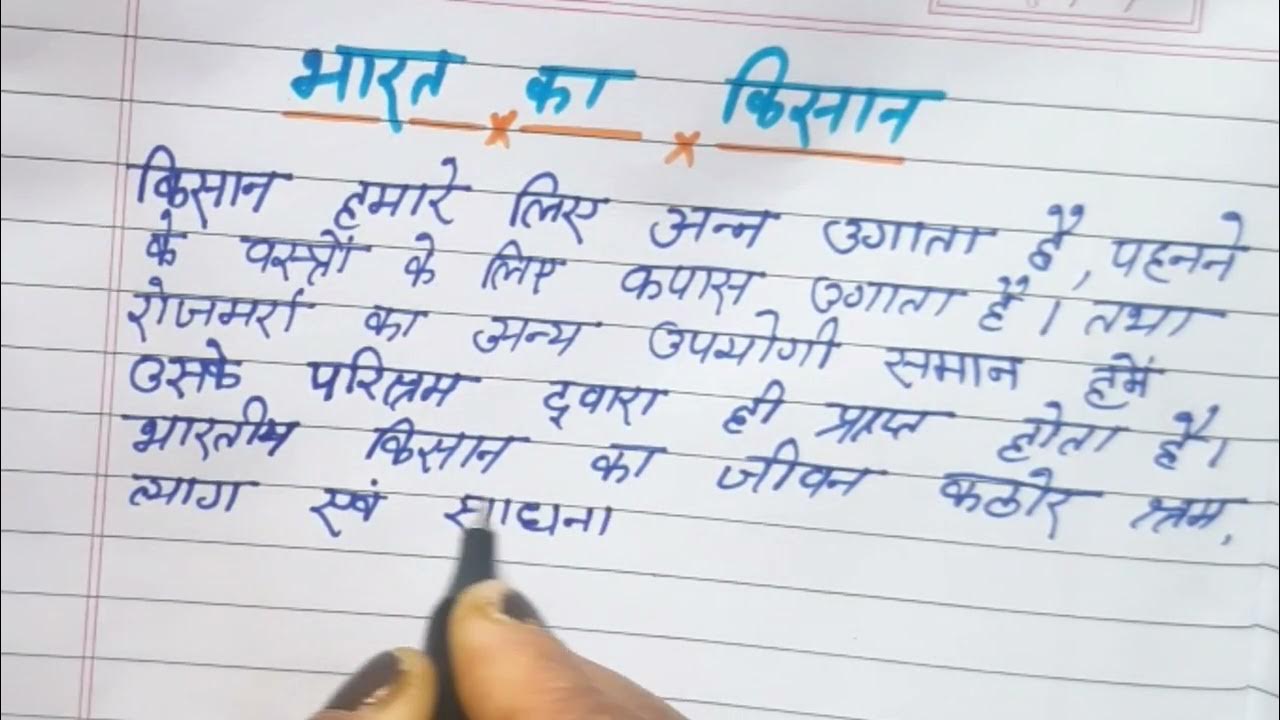 भारत का किसान
किसान हमारे लिए अन्न उगाता है, पहनने
के वस्त्रों के लिए कपास उगाता है। तथा
रोजमर्रा का अन्य उपयोगी समान हमें
उसके परिश्रम द्वारा ही प्राप्त होता है।
भारतीय किसान का जीवन कठोर श्रम,
त्याग एवं साधना